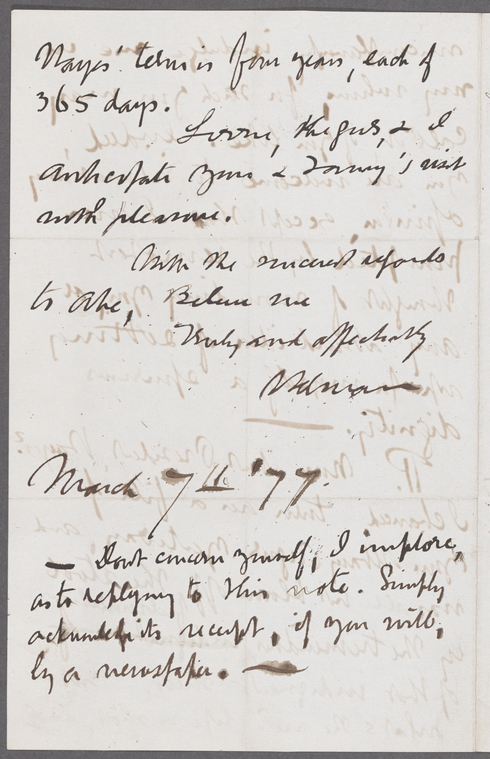 Hayes' term is four years, each of
365 days.
Lizzie, the girls, & I
anticipate your & Fanny's visit
with pleasure.
With the sincerest regards
to Abe, Believe me
Truly and affectly
March 7th '77.
— Dont concern yourself, I implore,
as to replying to this note. Simply
acknowledge its receipt, if you will,
by a newspaper. —